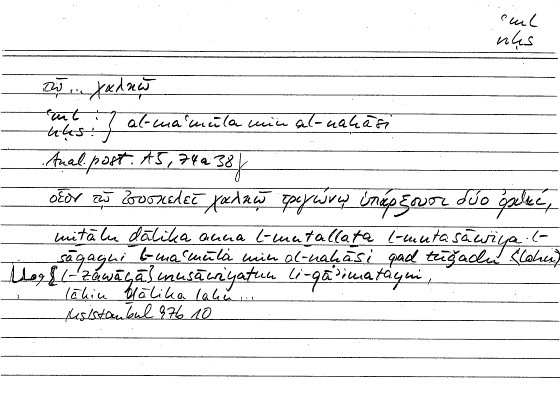 ʿml
nḥs
τῷ ... χαλκῷ
ʿml : } al-maʿmūla min al-naḥāsi
nḥs : }
Anal. post. A5, 74a38f
οἷον τῷ ἰσοσκελεῖ χαλκῷ τριγώνῳ ὑπάρξουσι δύο ὀρθαί,
miṯālu ḏālika anna l-muṯallaṯa l-mutasāwiya l-
sāqayni l-maʿmūla min al-naḥāsi qad tūǧadu <lahu>
{l-zawāyā} musāwiyatun li-qāʾimatayni,
lākin ḏālika lahu ...
Ms Istanbul 97b 10